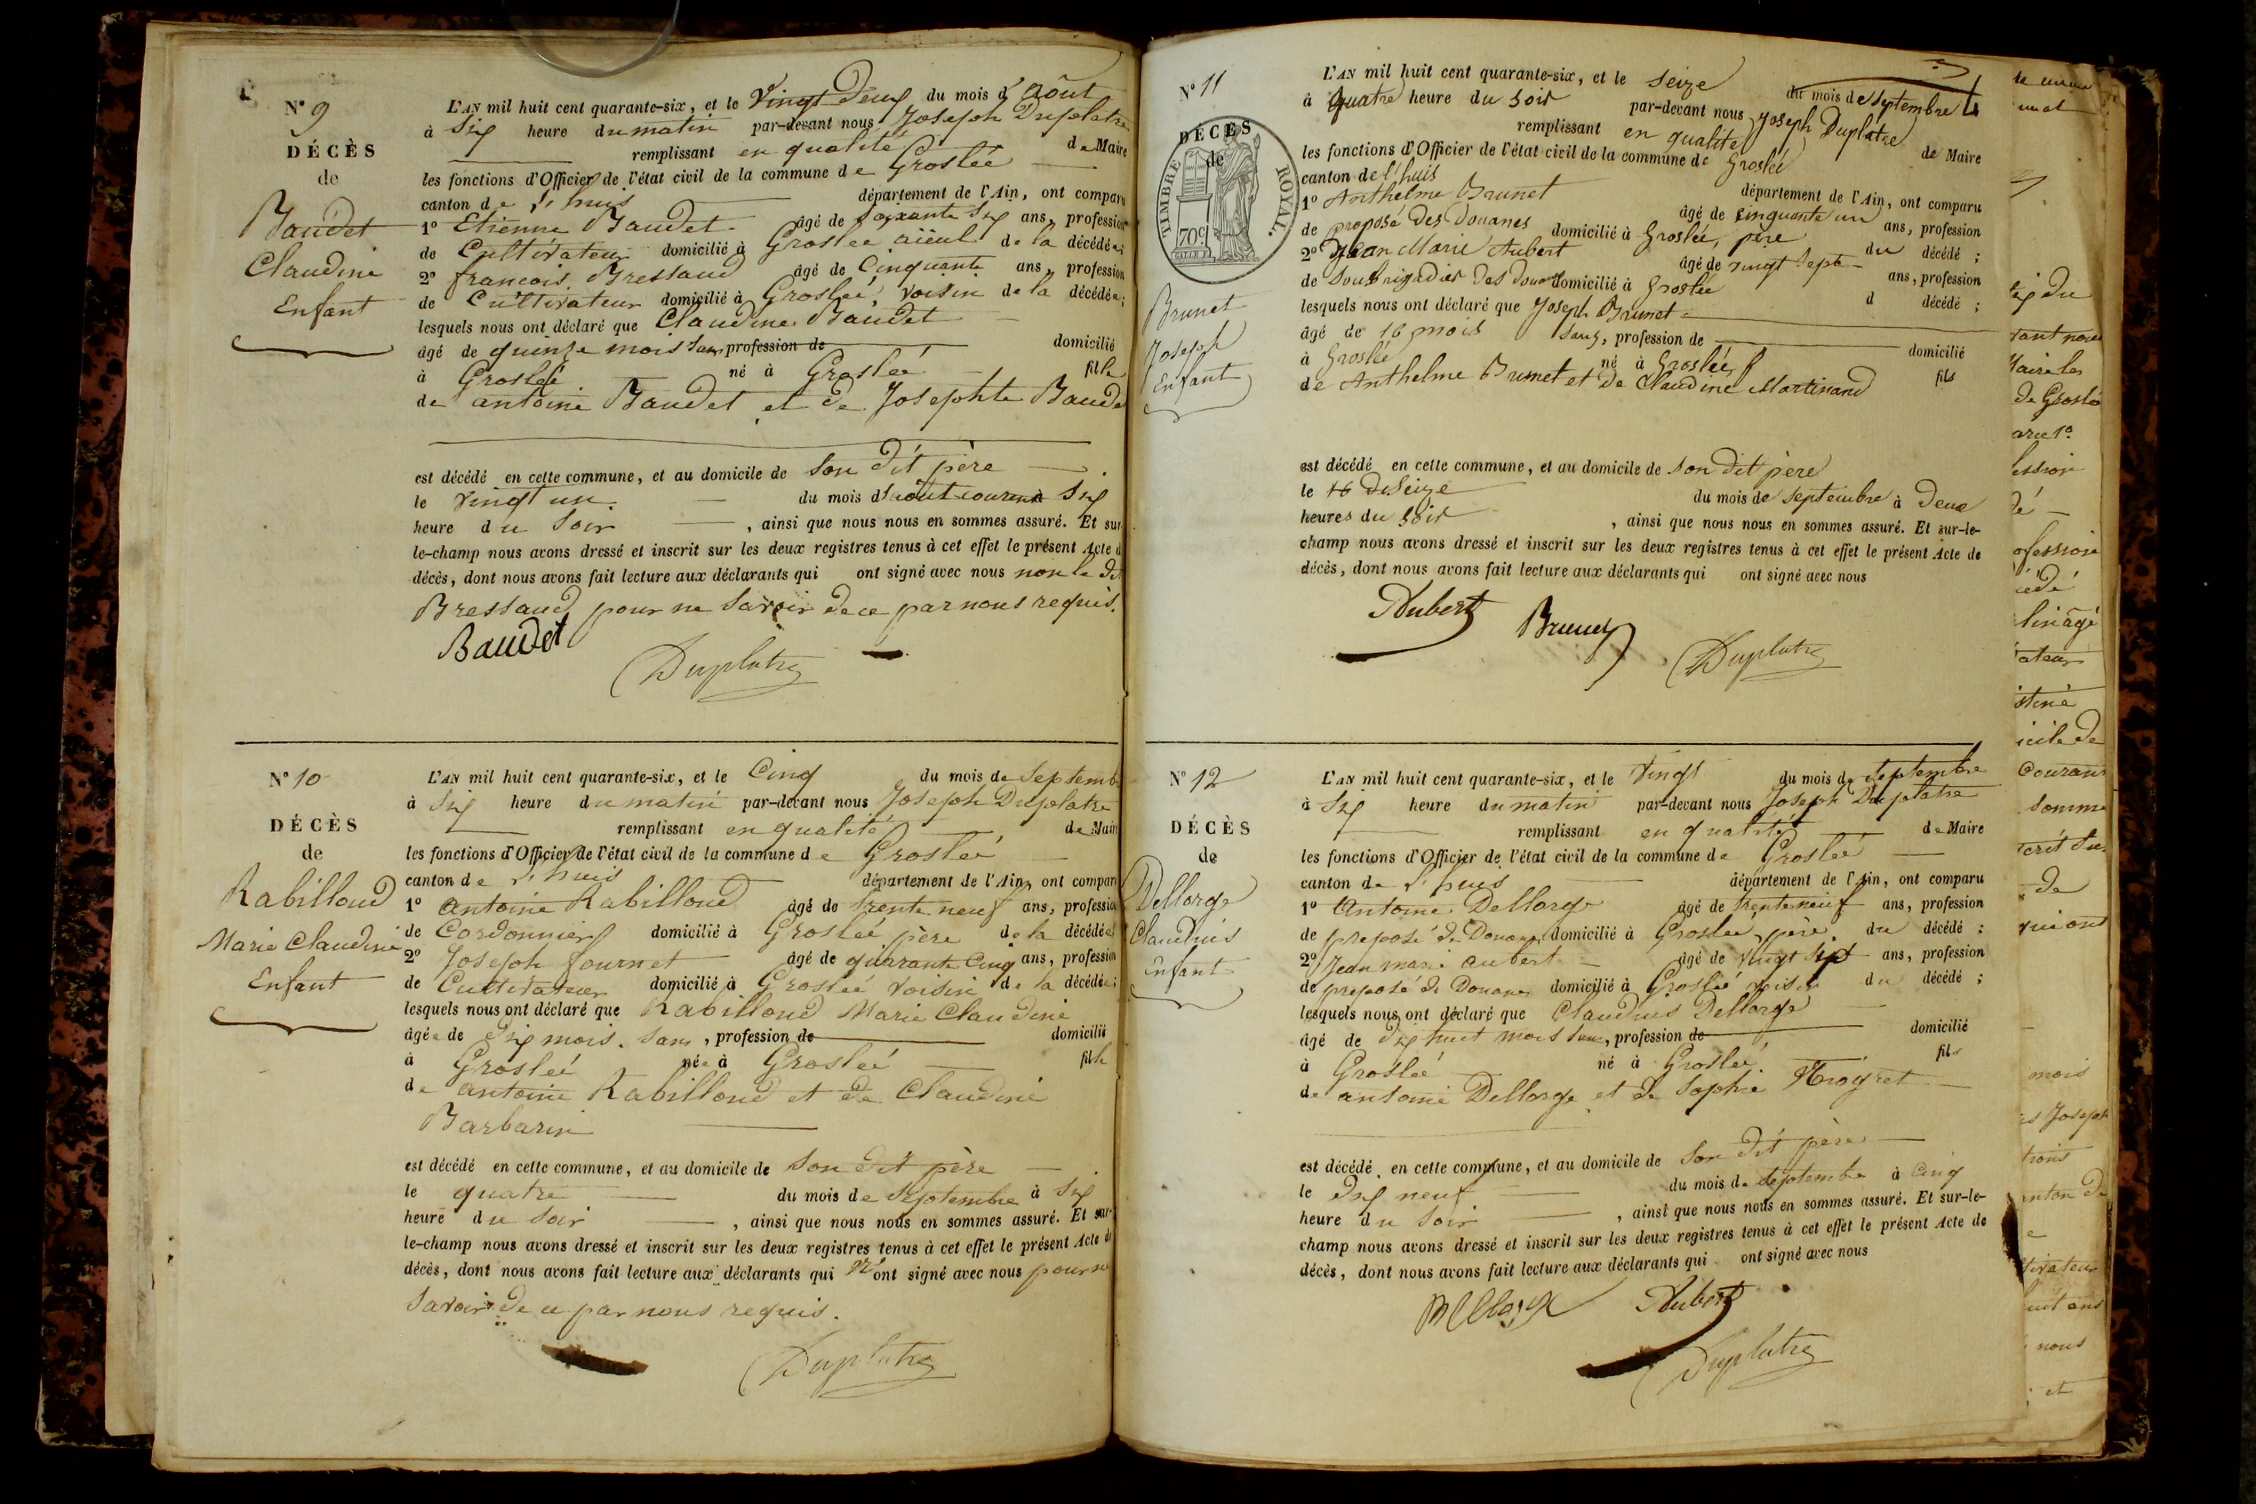 N° 9
DÉCÈS
de
Baudet
Claudine
Enfant
L'AN mil huit cent quarante-six, et le vingt Deux du mois d'août
à Six heure du matin par-devant nous Joseph Duplatre
remplissant en qualité de Maire
les fonctions d'Officier de l'état civil de la commune de Groslée
canton de L'huis département de l'Ain, ont comparu
1° Etienne Baudet âgé de soixante Six ans, profession
de Cultivateur domicilié à Groslée aïeul de la décédée;
2° francois Bressaud âgé de Cinquante ans, profession
de Cultivateur domicilié à Groslée, voisin de la décédée;
lesquels nous ont déclaré que Claudine Baudet
âgé de quinze mois sans, profession de domicilié
à Groslée né à Groslée fille
de antoine Baudet et de Josephte Baudet
est décédé en cette commune, et au domicile de son dit père
le vingt un du mois d'août courant à Six
heure du Soir, ainsi que nous nous en sommes assuré. Et sur-
le-champ nous avons dressé et inscrit sur les deux registres tenus à cet effet le présent Acte d
décès, dont nous avons fait lecture aux déclarants qui ont signé avec nous non le dit
Bressaud pour ne Savoir de ce par nous requis.
Baudet
Duplatre
N° 10
DÉCÈS
de
Rabilloud
Marie Claudine
Enfant
L'AN mil huit cent quarante-six, et le Cinq du mois de Septemb
à Six heure du matin par-devant nous Joseph Duplatre
remplissant en qualité de Maire
les fonctions d'Officier de l'état civil de la commune de Groslée
canton de L'huis département de l'Ain, ont comparu
1° antoine Rabilloud âgé de trente neuf ans, profession
de Cordonnier domicilié à Groslée père de la décédée
2° Joseph fournet âgé de quarante Cinq ans, profession
de Cultivateur domicilié à Groslée voisin de la décédée;
lesquels nous ont déclaré que Rabilloud Marie Claudine
âgée de Dix mois. Sans, profession de domicilié
à Groslée née à Groslée fille
de antoine Rabilloud et de Claudine
Barbarin
est décédé en cette commune, et au domicile de Son dit père
le quatre du mois de Septembre à Six
heure du Soir, ainsi que nous nous en sommes assuré. Et sur-
le-champ nous avons dressé et inscrit sur les deux registres tenus à cet effet le présent Acte de
décès, dont nous avons fait lecture aux déclarants qui N'ont signé avec nous pour ne
Savoir de ce par nous requis.
Duplatre
N° 11
DÉCÈS
de
TIMBRE ROYAL.
70c
Brunet
Joseph
Enfant
L'AN mil huit cent quarante-six, et le Seize du mois de Septembre
à quatre heure du Soir par-devant nous Joseph Duplatre
remplissant en qualité de Maire
les fonctions d'Officier de l'état civil de la commune de Groslée
canton de l'huis département de l'Ain, ont comparu
1° Anthelme Brunet âgé de cinquante un ans, profession
de Préposé Des Douanes domicilié à Groslée, père du décédé;
2° Jean Marie Aubert âgé de vingt Sept ans, profession
de Sousbrigadier des Douanes domicilié à Groslée d décédé;
lesquels nous ont déclaré que Joseph Brunet
âgé de 16 mois sans, profession de domicilié
à Groslée né à Groslée fils
de Anthelme Brunet et de Claudine Martinand
est décédé en cette commune, et au domicile de son dit père
le 16 du mois de Septembre à Deux
heures du Soir, ainsi que nous nous en sommes assuré. Et sur-le-
champ nous avons dressé et inscrit sur les deux registres tenus à cet effet le présent Acte de
décès, dont nous avons fait lecture aux déclarants qui ont signé avec nous
Aubert
Brunet
Duplatre
N° 12
DÉCÈS
de
Dellorge
Claudius
Enfant
L'AN mil huit cent quarante-six, et le Vingt du mois de Septembre
à Six heure du matin par-devant nous Joseph Duplatre
remplissant en qualité de Maire
les fonctions d'Officier de l'état civil de la commune de Groslée
canton de L'huis département de l'Ain, ont comparu
1° Antoine Dellorge âgé de trente neuf ans, profession
de préposé de Douanes domicilié à Groslée, père du décédé;
2° Jean marie aubert âgé de vingt Sept ans, profession
de préposé de Douanes domicilié à Groslée voisin du décédé;
lesquels nous ont déclaré que Claudius Dellorge
âgé de Dix huit mois sans, profession de domicilié
à Groslée né à Groslée. fils
de antoine Dellorge et de Sophie
est décédé en cette commune, et au domicile de Son dit père
le Dix neuf du mois de Septembre à Cinq
heure du Soir, ainsi que nous nous en sommes assuré. Et sur-le-
champ nous avons dressé et inscrit sur les deux registres tenus à cet effet le présent Acte de
décès, dont nous avons fait lecture aux déclarants qui ont signé avec nous
Dellorge
Aubert
Duplatre